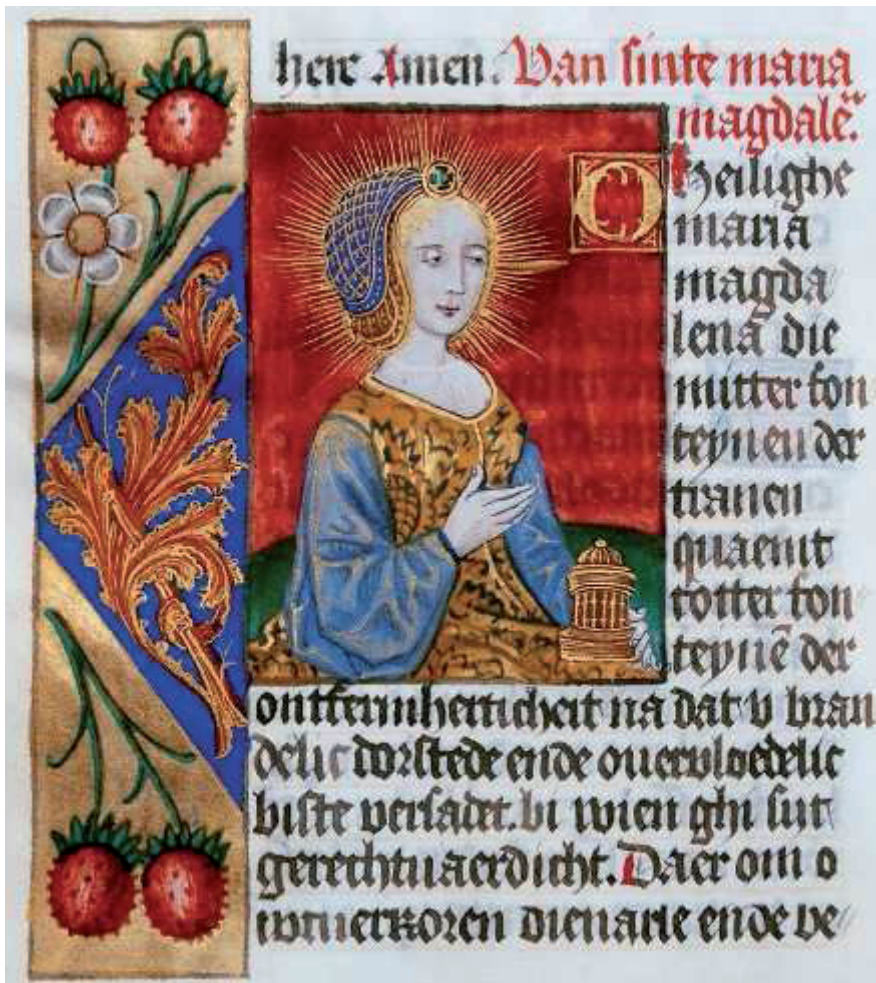 here Amen. Van sinte maria
magdalē.
O Heilighe
maria
magda
lena die
mitter fon
teynen der
tranen
quaemt
totter fon
teynē der
ontfermherticheit na dat v bran
delic dorstede ende ouervloedelic
biste versadet. bi wien ghi sijt
gerechtuaerdicht. Daer om o
wtuerkoren dienarse ende be